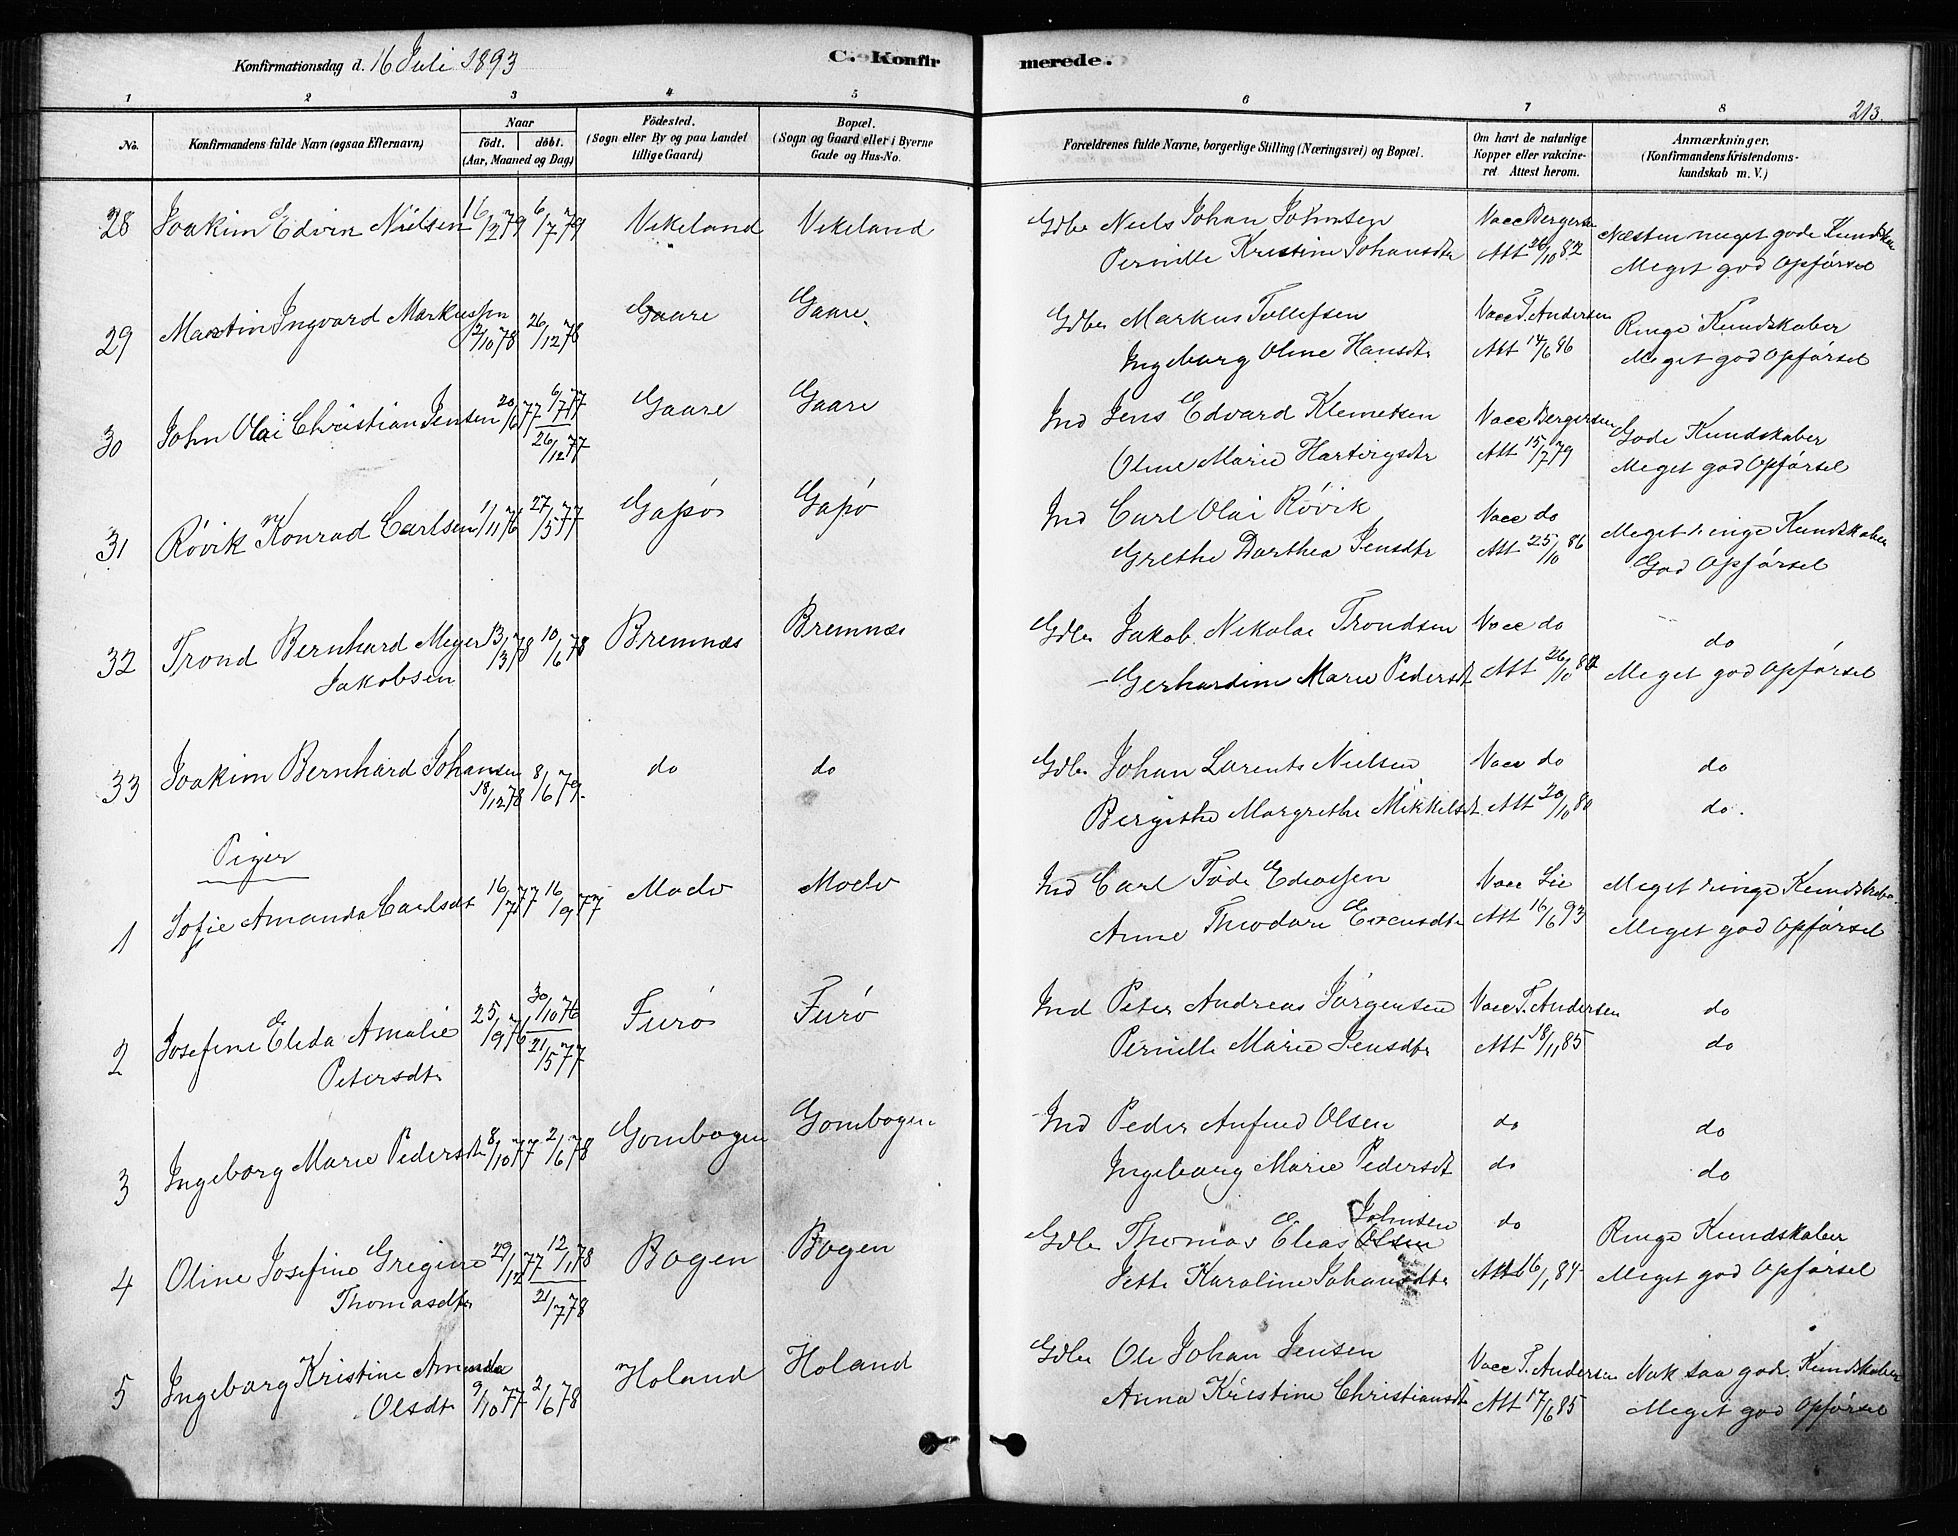 Konfirmationsdag d. 16 Juli 1893
C. Konfirmerede.
213.
1 2 3 4 5 6 7 8
No.
Konfirmandens fulde Navn (ogsaa Efternavn)
Naar
födt. döbt.
(Aar, Maaned og Dag)
Födested.
(Sogn eller By og paa Landet
tillige Gaard)
Bopæl.
(Sogn og Gaard eller i Byerne
Gade og Hus-No.
Forældrenes fulde Navne, borgerlige Stilling (Næringsvei) og Bopæl.
Om havt de naturlige
Kopper eller vakcine-
ret Attest herom.
Anmærkninger.
(Konfirmandens Kristendoms-
kundskab m. V.)
28 Joakim Edvin Nielsen 16/2 79 6/7 79 Vikeland Vikeland Gdbr Niels Johan Johnsen Vacc Bergersen Næsten meget gode Kundskaber
Pernille Kristine Johansdtr Att 26/10 82 Meget god Opførsel
29 Martin Ingvard Markussen 12/10 78 26/12 78 Gaare Gaare Gdbr Markus Tollefsen Vacc T. Andersen Ringe Kundskaber
Ingeborg Oline Hansdtr Att 14/6 86 Meget god Opførsel
30 John Olai Christian Jensen 20/6 77 6/7 77 Gaare Gaare Ind Jens Edvard Klemetsen Vacc Bergersen Gode Kundskaber
26/12 77 Oline Marie Hartvigsdtr Att 15/7 79 Meget god Opførsel
31 Røvik Konrad Carlsen 1/11 76 27/5 77 Gapø Gapø Ind Carl Olai Røvik Vacc do Meget ringe Kundskaber
Grethe Dorthea Jensdtr Att 25/10 86 God Opførsel
32 Trond Bernhard Meyer 13/3 78 10/6 78 Bremnæs Bremnæs Gdbr Jakob Nikolai Trondsen Vacc do do
Jakobsen Gerhardine Marie Pedersdt Att 26/10 82 Meget god Opførsel
33 Joakim Bernhard Johansen 18/12 78 8/6 79 do do Gdbr Johan Lorents Nielsen Vacc do do
Bergithe Margrethe Mikkelsdt Att 20/10 80 do.
Piger
1 Sofie Amanda Carlsdt 16/7 77 16/9 77 Moelv Moelv Ind Carl Tøde Vacc Lie Meget ringe Kundskaber
Anne Theodore Evensdtr Att 16/6 93 Meget god Opførsel
2 Josefine Elida Amalie 25/9 76 30/10 76 Furø Furø Ind Peter Andreas Jørgensen Vacc T. Andersen do
Petersdtr 21/5 77 Pernille Marie Jensdtr Att 18/11 85 do
3 Ingeborg Marie Pedersdtr 8/10 77 2/6 78 Gombogen Gombogen Ind Peder Anfind Olsen do do
Ingeborg Marie Pedersdt do do
4 Oline Josefine Gregine 29/12 77 12/1 78 Bogen Bogen Gdbr Thomas Elias Olsen Johnsen do Ringe Kundskaber
Thomasdtr 21/7 78 Jette Karoline Johansdtr Att 6/1 84 Meget god Opførsel
5 Ingeborg Kristine Amanda 9/10 77 2/6 78 Holand Holand Gdbr Ole Johan Jensen Vacc T. Andersen Nok saa gode Kundskaber
Olsdt Anna Kristine Christiansdt Att 17/6 85 Meget god Opførsel